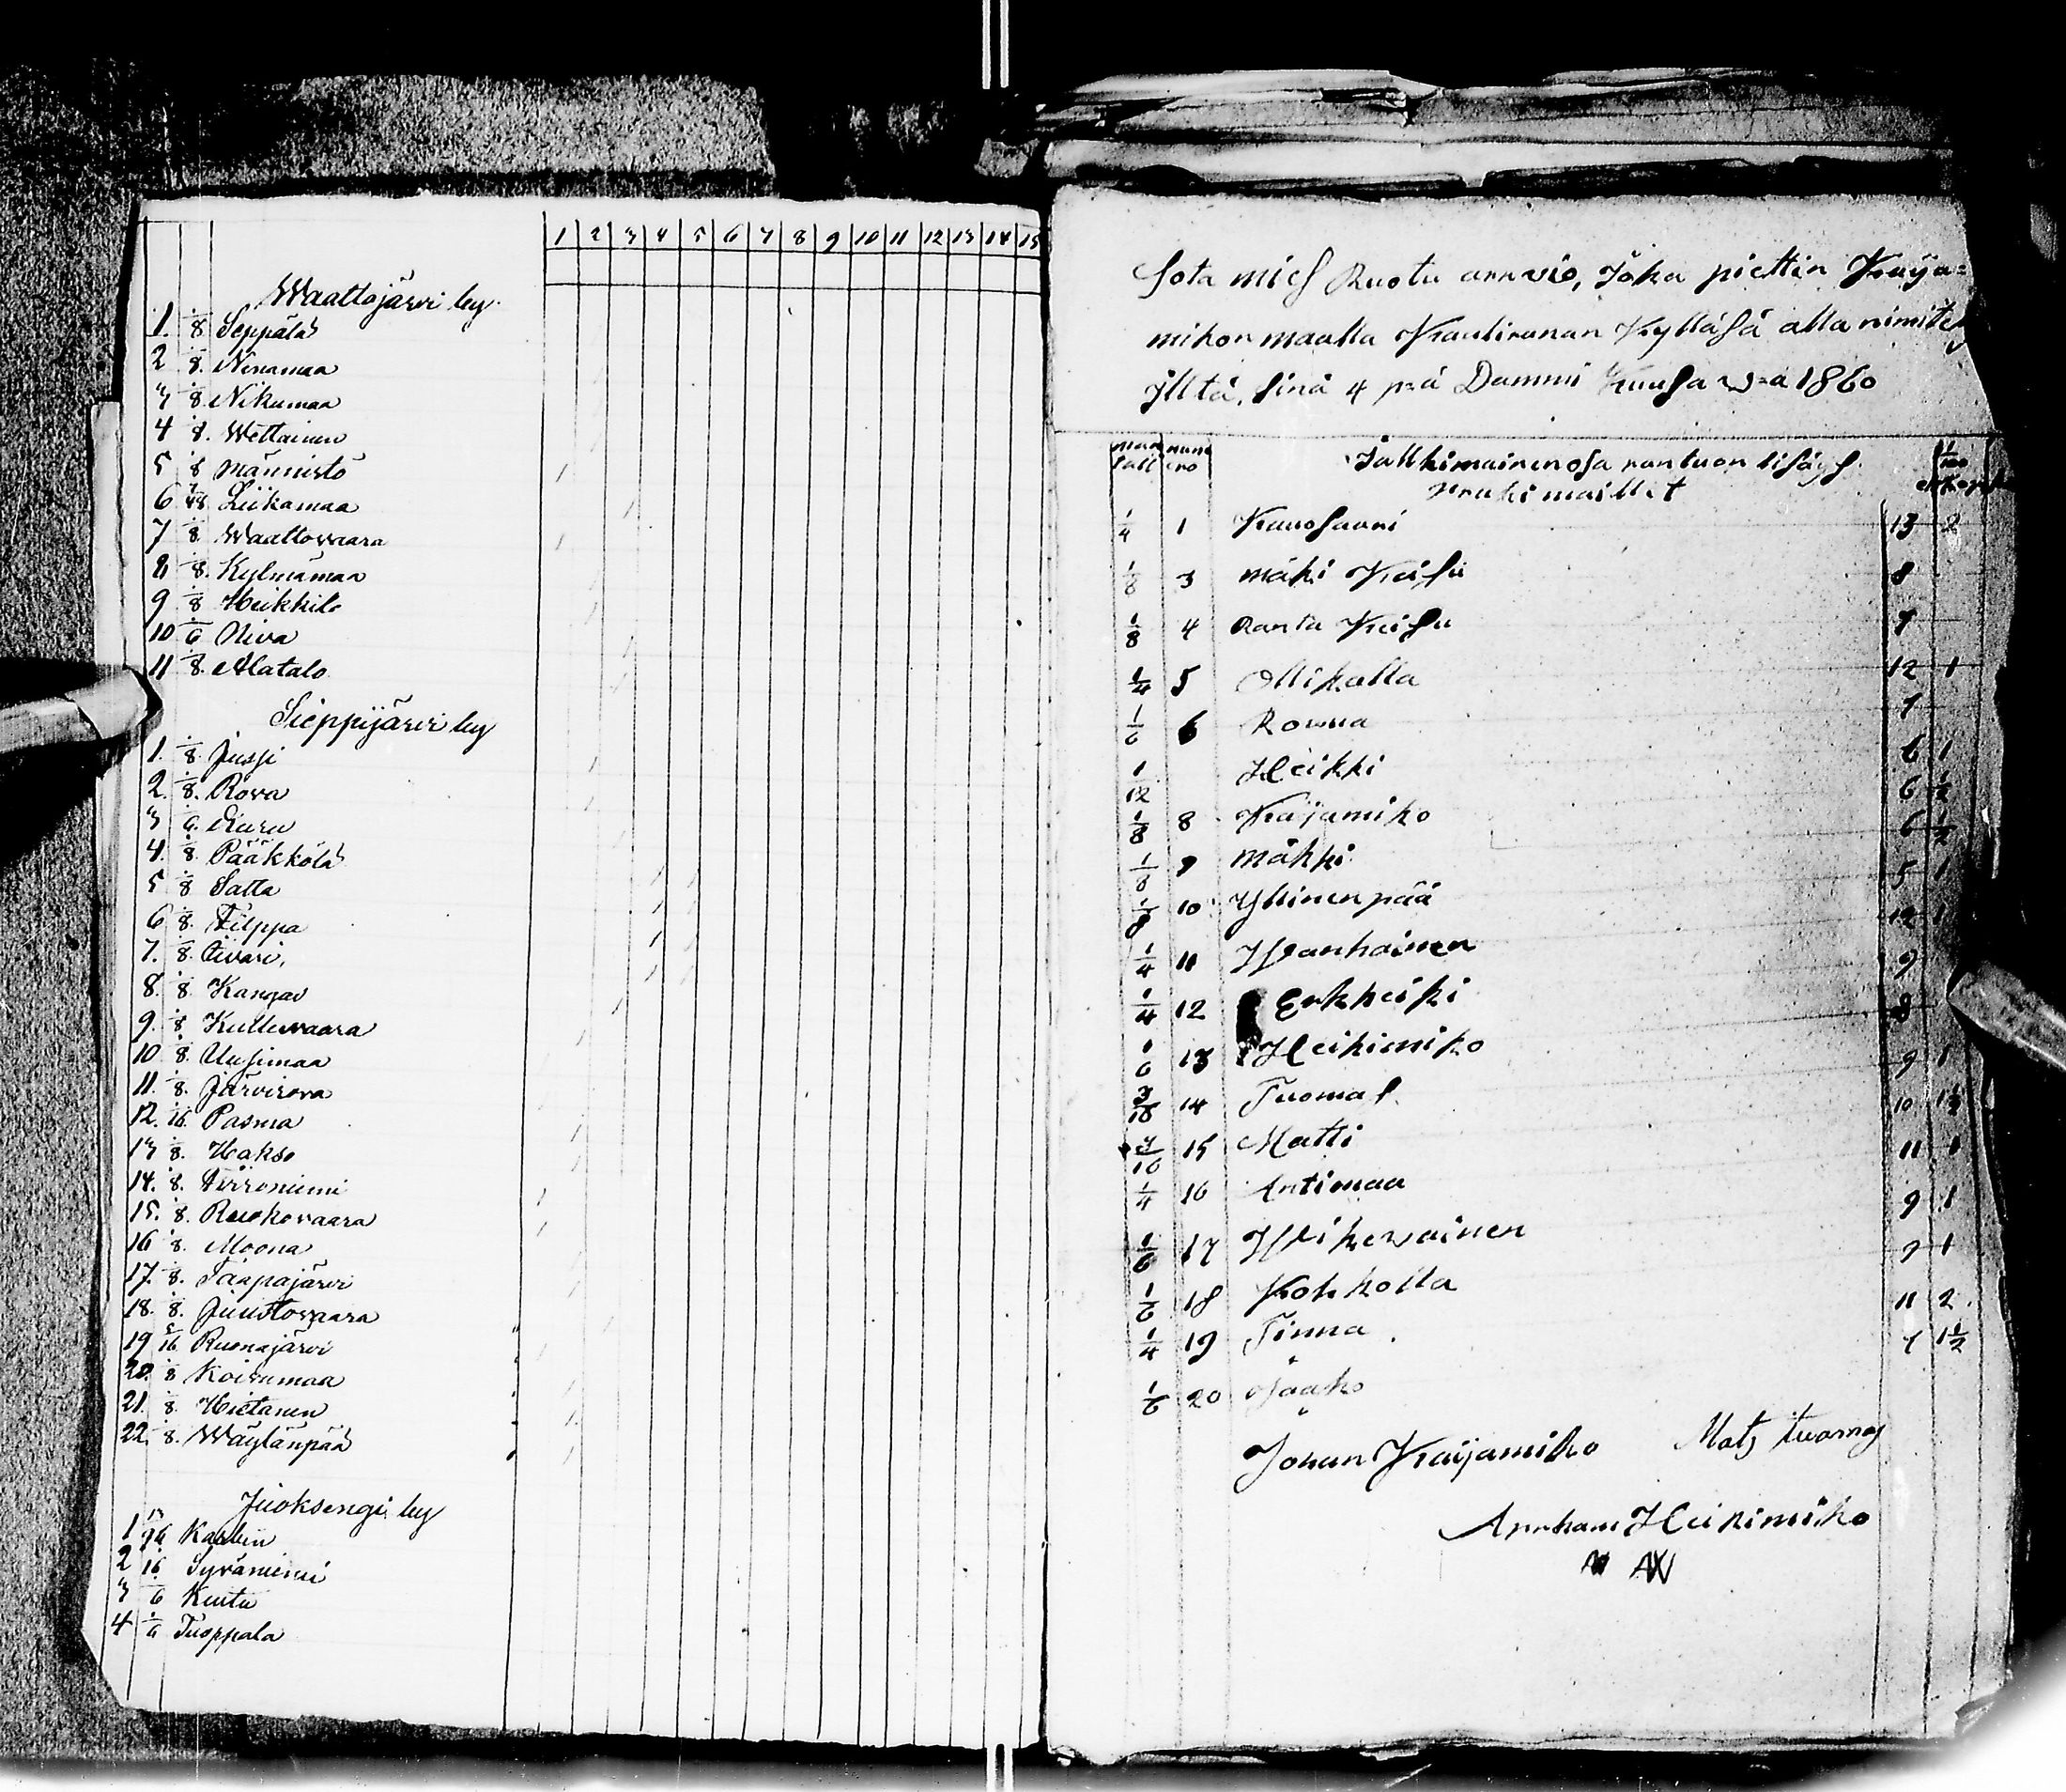 1 2 3 4 5 6 7 8 9 10 11 12 13 14 15
Waattojärvi by
1. 1/8 Seppälä
2 1/8. Niranmaa
3 1/8 Nikumaa
4 1/8. Wettainen
5 1/8 Männistö 1
6 7/48 Liikamaa 1
7 1/8 Waattovaara 1
8 1/8. Kylmämaa
9 1/8 Heikkilä
10 1/6 Niva
11 1/8. Alatalo
Sieppijärvi by
1. 1/8 Jussi
2. 1/8. Rova
3 1/6. Kuru
4. 1/8. Pääkkölä
5 1/8 Satta
6 1/8. Filppa
7. 1/8. Iivari,
8. 1/8. Kangas
9. 1/8 Kulluvaara
10 1/8. Uusimaa
11. 1/8. Järvirova
12. 1/16 Pasma
13 1/8. Hakso
14. 1/8. Törröniemi
15. 1/8. Ruokovaara
16 1/8. Moona
17. 1/8. Taapajärvi
18. 1/8. Juustovaara
19 5/16 Ruonajärvi
20. 1/8 Koirumaa
21. 1/8. Hietanen
22. 1/8. Wäylänpää
Juoksengi by
1 Kaalin
2 1/16 Syväniemi
3 1/6 Kuutu
4 1/6 Tuoppala
Sota mies Ruotu arrvio, Joka piettin Kaija=
mikon maalla Kauliranan Kylläsä alla nimitet
yltä, sinä 4 p:ä Dammi Kuusa w:a 1860
man tall num ero Jälkimäinen osa rantuon lisäys
1/4 1 Kauosaari 13 2
1/8 3 mäki Keisu 8
1/8 4 Ranta Keisu 7
1/4 5 Ollikalla 12 1
1/6 6 Rowa 7
1/12 Heikki 6 1
1/8 8 Kaijamiko 6 1/2
1/8 9 mäkki 6 1/2
1/8 10 Yllinenpää 5 1
1/4 11 Wanhainen 12 1
1/4 12 Erkheiki 9
1/6 13 Heikimiko 8
3/16 14 Tuomas 9 1
3/16 15 Matti 10 1 1/2
1/4 16 Antimaa 11 1
1/6 17 Wikewainen 9 1
1/6 18 Kohkolla 9 1
1/4 19 Tinna 11 2
1/6 20 Jaako 7 1 1/2
Johan Kaijamiko Mats tuomas
Abraham Heikimiko
AW